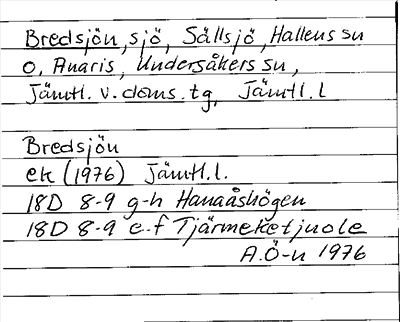 Bredsjön, sjö, Sällsjö, Hallens sn
o. Anaris, Undersåkers sn,
Jämtl. v. doms. tg, Jämtl. l
Bredsjön
ek (1976) Jämtl. l.
18D 8-9 g-h Hanaåshögen
18D 8-9 e-f Tjärmeketjuole
A.Ö-n 1976